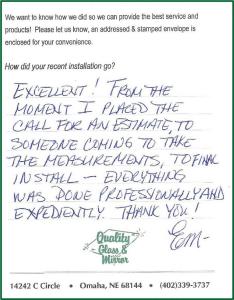 We want to know how we did so we can provide the best service and
products! Please let us know, an addressed & stamped envelope is
enclosed for your convenience.
How did your recent installation go?
EXCELLENT! FROM THE
MOMENT I PLACED THE
CALL FOR AN ESTIMATE, TO
SOMEONE COMING TO TAKE
THE MEASUREMENTS, TO FINAL
INSTALL – EVERYTHING
WAS DONE PROFESSIONALLY AND
EXPEDIENTLY. THANK YOU!
Quality
Glass &
Mirror
14242 C Circle • Omaha, NE 68144 • (402)339-3737